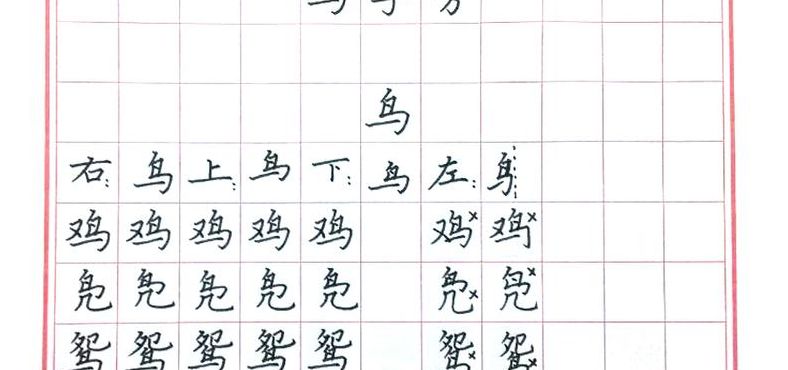 鸟字旁
鸟
右: 鸟 上: 鸟 下: 鸟 左:
鸡 鸡 鸡 鸡 鸡 鸡× 鸡×
凫 凫 凫 凫 凫 凫× 凫×
鸳 鸳 鸳 鸳 鸳 鸳× 鸳×